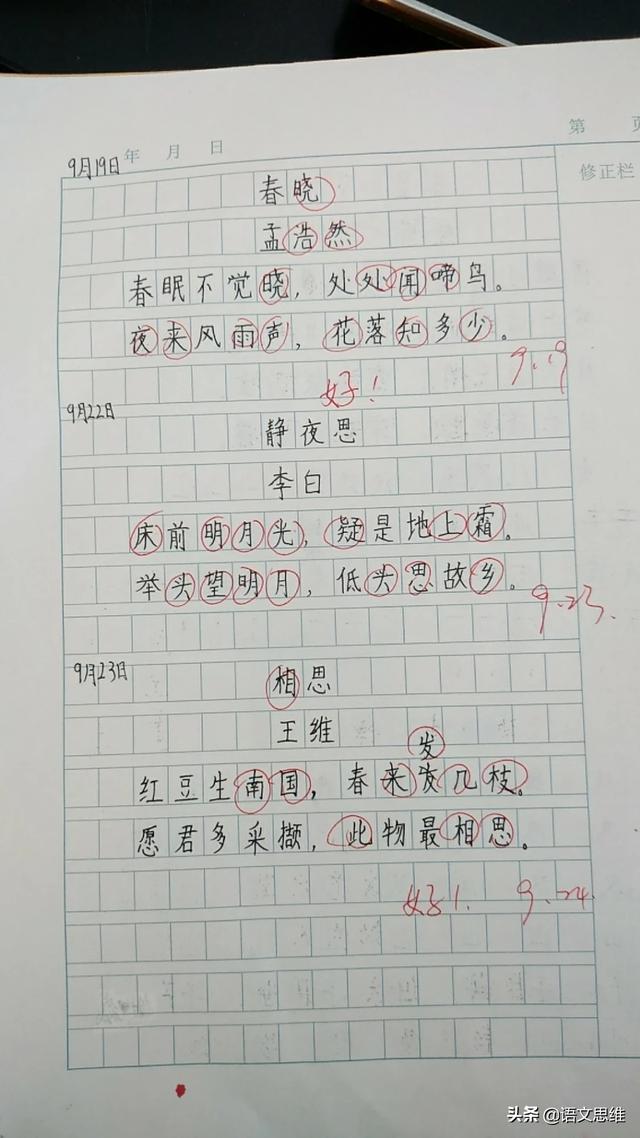 第 页
年 月 日
9月19日
修正栏
春晓
孟浩然
春眠不觉晓，处处闻啼鸟。
夜来风雨声，花落知多少。
好！ 9.19
9月22日
静夜思
李白
床前明月光，疑是地上霜。
举头望明月，低头思故乡。
9.23.
9月23日
相思
王维
发
红豆生南国，春来发几枝。
愿君多采撷，此物最相思。
好！. 9.24
头条 @语文思维